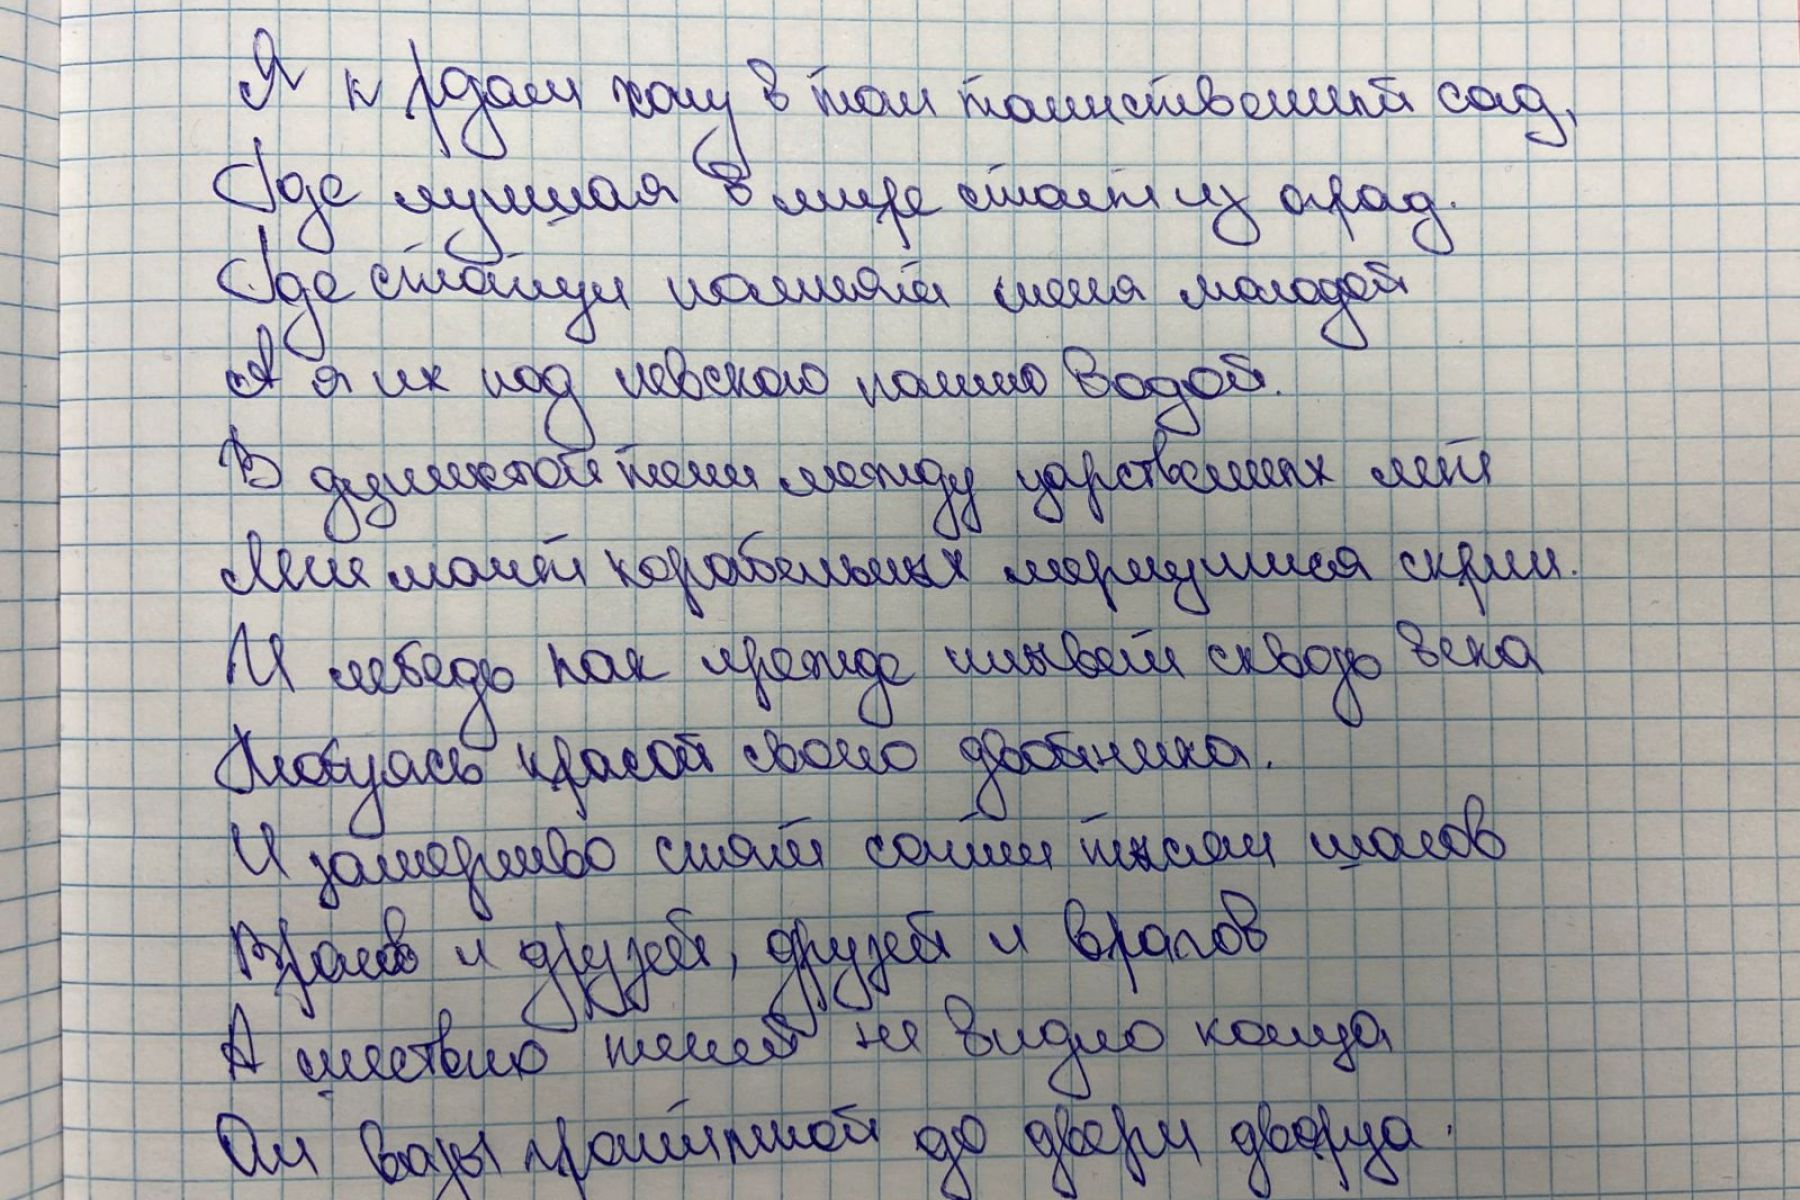 Я к розам хочу в тот таинственный сад,
Где лучшая в мире стоит из оград.
Где статуи помнят меня молодой
А я их под невскою помню водой.
В душистой тени между царственных лип
Мне мачт корабельных мерещится скрип.
И лебедь как прежде плывет сквозь века
Любуясь красой своего двойника.
И замертво спят сотни тысяч шагов
Врагов и друзей, друзей и врагов
А шествию теней не видно конца
От вазы гранитной до двери дворца.